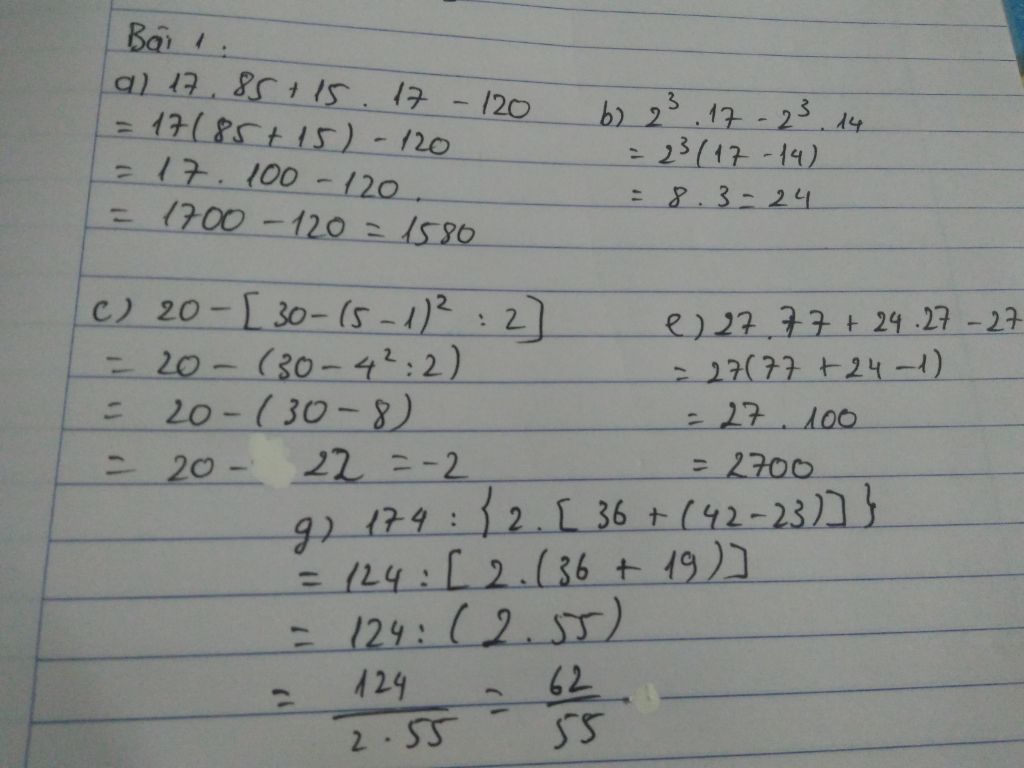 Bài 1:
a) 17 . 85 + 15 . 17 - 120
= 17(85 + 15) - 120
= 17 . 100 - 120.
= 1700 - 120 = 1580
b) 2³ . 17 - 2³ . 14
= 2³(17 - 14)
= 8 . 3 = 24
c) 20 - [30 - (5 - 1)² : 2]
= 20 - (30 - 4² : 2)
= 20 - (30 - 8)
= 20 - 22 = -2
e) 27 . 77 + 24 . 27 - 27
= 27(77 + 24 - 1)
= 27 . 100
= 2700
g) 174 : {2 . [36 + (42 - 23)]}
= 124 : [2 . (36 + 19)]
= 124 : (2 . 55)
= 124 / 2 . 55 = 62 / 55 .